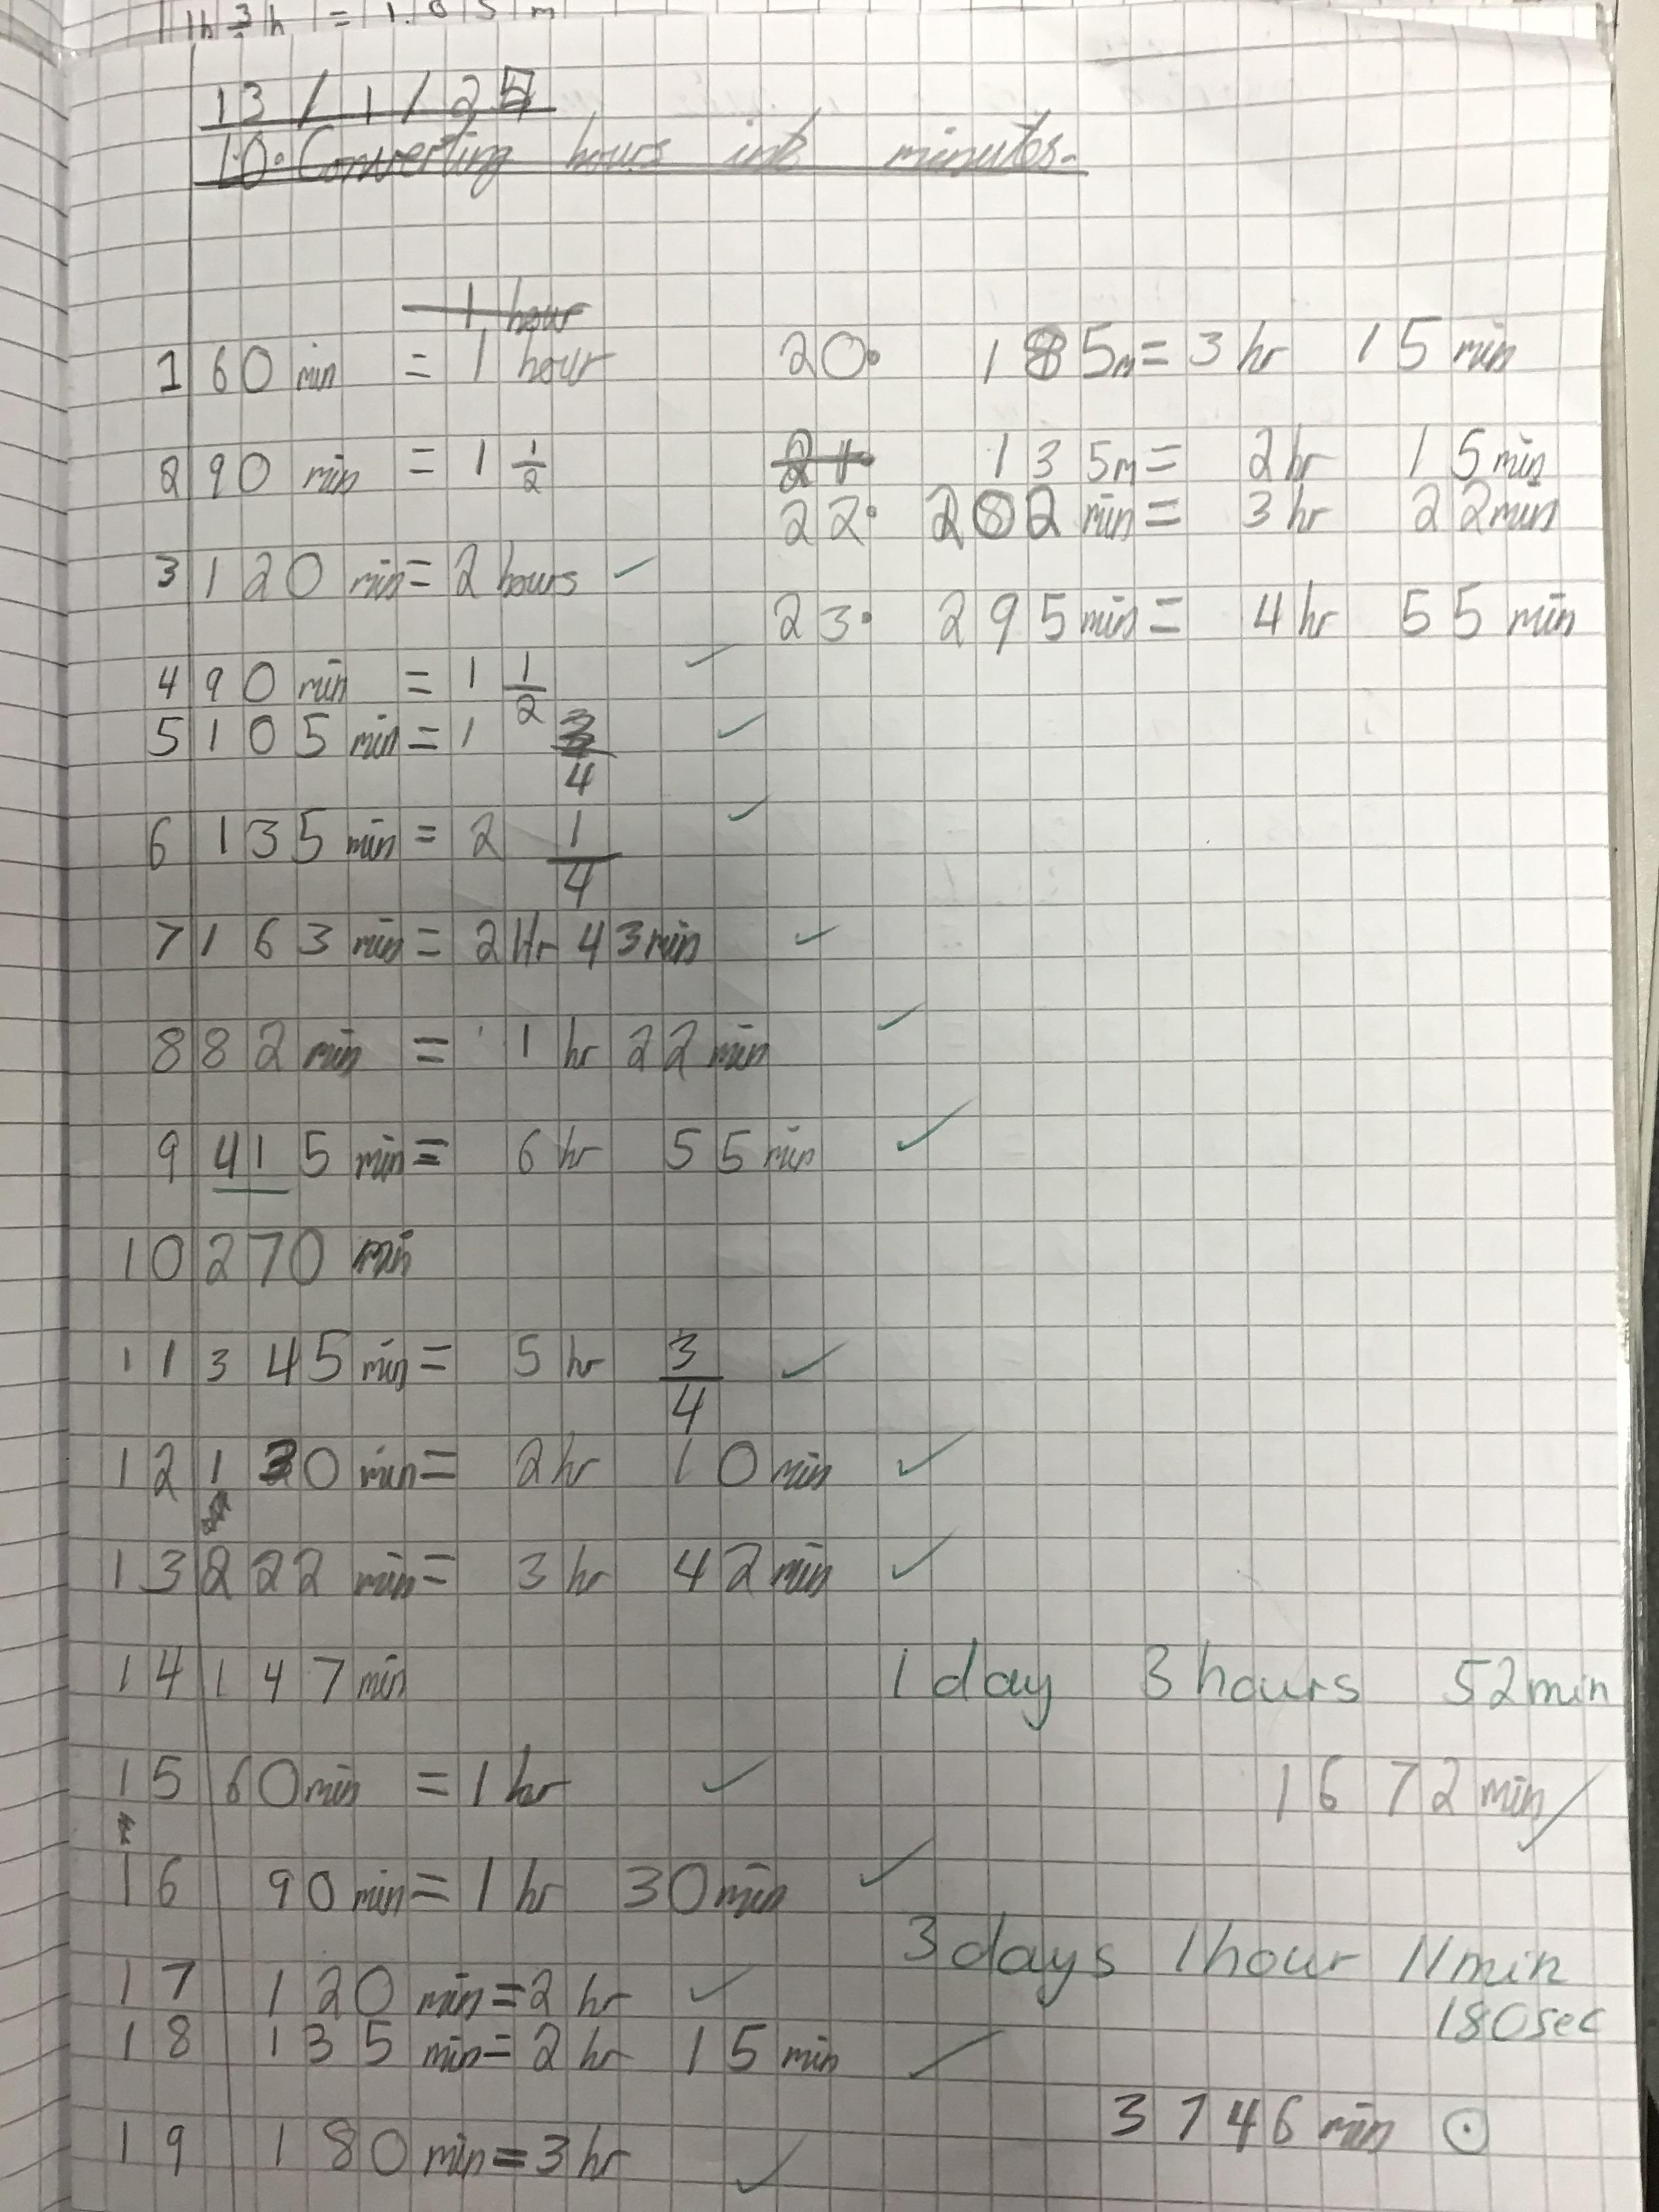 13/1/25
L.O: Converting hours into minutes.
1 hour
1 60 min = 1 hour
2 90 min = 1 1/2
3 120 min = 2 hours ✓
4 90 min = 1 1/2 ✓
5 105 min = 1 3/4 ✓
6 135 min = 2 1/4 ✓
7 163 min = 2 Hr 43 min ✓
8 82 min = 1 hr 22 min ✓
9 415 min = 6 hr 55 min ✓
10 270 min
11 345 min = 5 hr 3/4 ✓
12 130 min = 2 hr 10 min ✓
13 222 min = 3 hr 42 min ✓
14 147 min
15 60 min = 1 hr ✓
16 90 min = 1 hr 30 min ✓
17 120 min = 2 hr ✓
18 135 min = 2 hr 15 min ✓
19 180 min = 3 hr ✓
20. 185m = 3 hr 15 min
21. 135m = 2 hr 15 min
22. 202 min = 3 hr 22 min
23. 295 min = 4 hr 55 min
1 day 3 hours 52 min
1672 min ✓
3 days 1 hour 11 min
180 sec
3746 min